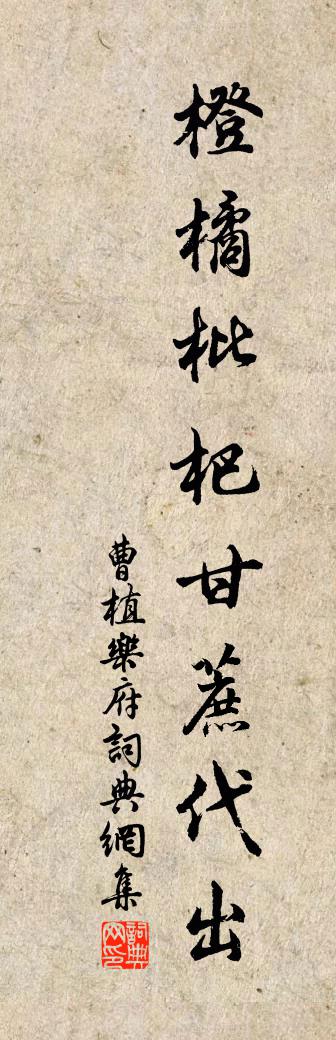 橙橘枇杷甘蔗代出
曹植樂府詞典網集
詞典网印